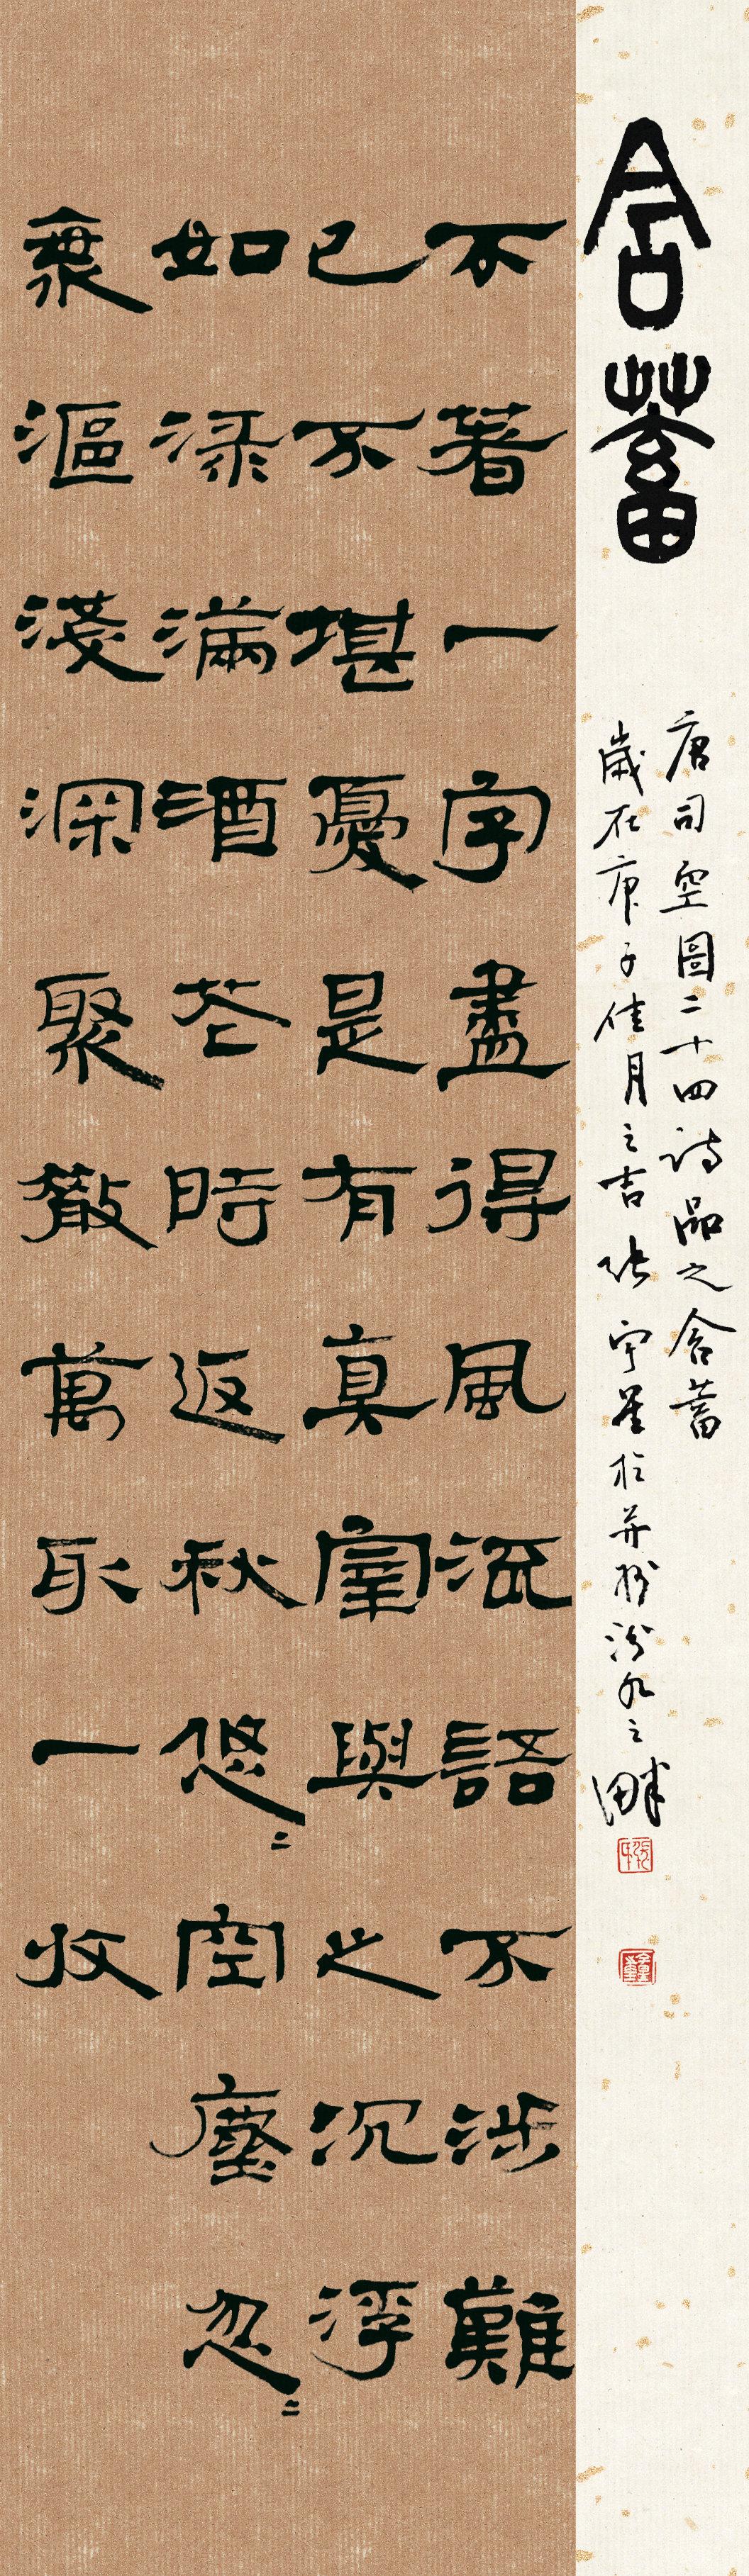 含蓄
唐司空圖二十四詩品之含蓄
歲在庚子佳月之吉張宇星於并州汾水之畔
不著一字盡得風流語不涉難
已不堪憂是有真宰與之沉浮
如渌滿酒花時返秋悠〻空塵忽〻
衆漚淺深聚散萬取一收